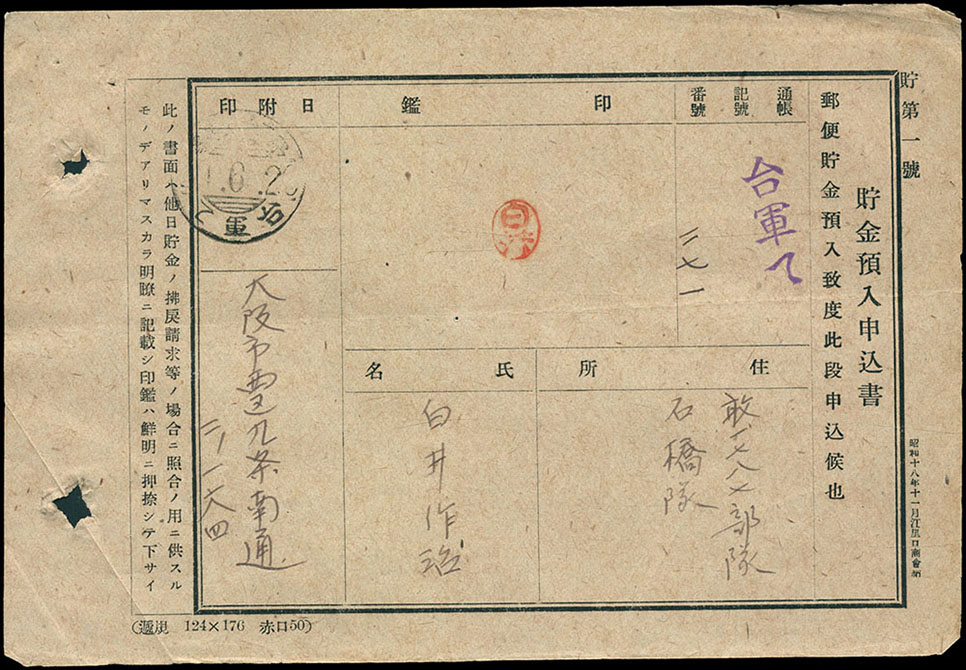 貯第一號
貯金預入申込書
郵便貯金預入致度此段申込候也
昭和十八年十一月江里口商會納
通帳
記號
番號
台軍て
二七一
印鑑
日附印
6.2
台軍
住所
敢一七八七部隊
石橋隊
氏名
白井作治
大阪市西区九条南通
二ノ一六四
此ノ書面ハ他日貯金ノ拂戻請求等ノ場合ニ照合ノ用ニ供スル
モノデアリマスカラ明瞭ニ記載シ印鑑ハ鮮明ニ押捺シテ下サイ
(遞規 124×176 赤口50)